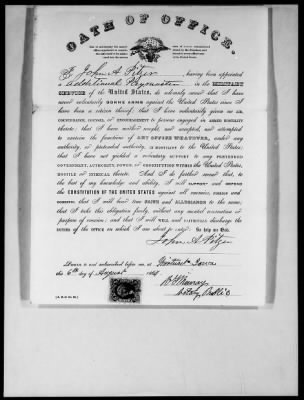 OATH OF OFFICE.
I, John A. Pitzer, having been appointed
Additional Paymaster in the MILITARY
SERVICE of the United States, do solemnly swear that I have
never voluntarily BORNE ARMS against the United States since I
have been a citizen thereof; that I have voluntarily given no AID,
COUNTENANCE, COUNSEL, OR ENCOURAGEMENT to persons engaged in ARMED HOSTILITY
thereto; that I have neither sought, nor accepted, nor attempted
to exercise the functions of ANY OFFICE WHATEVER, under any
authority, or pretended authority, in HOSTILITY to the United States; that
I have not yielded a voluntary support to any PRETENDED
GOVERNMENT, AUTHORITY, POWER, OR CONSTITUTION WITHIN THE UNITED STATES,
HOSTILE OR INIMICAL thereto. And I do further swear that, to
the best of my knowledge and ability, I will SUPPORT and DEFEND
the CONSTITUTION OF THE UNITED STATES against all enemies, FOREIGN and
DOMESTIC; that I will bear true FAITH and ALLEGIANCE to the same;
that I take this obligation freely, without any mental reservation or
purpose of evasion; and that I will WELL and FAITHFULLY DISCHARGE the
DUTIES of the OFFICE on which I am about to enter: So help me God.
John A. Pitzer
Sworn to and subscribed before me, at Winterset Iowa
this 6th day of August 1864
Notary Public